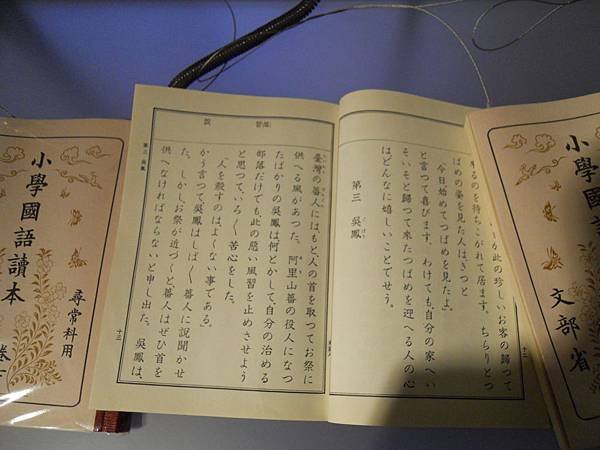 文部省
が此の珍しいお客の歸つて
來るのを待ちこがれて居ます。ちらりとつ
ばめの姿を見た人は、きつと
「今日始めてつばめを見たよ。」
と言つて喜びます。わけても、自分の家へい
そいそと歸つて來たつばめを迎へる人の心
はどんなに嬉しいことでせう。
第三 吳鳳
十二
臺灣の蕃人には、もと、人の首を取つてお祭に
供へる風があつた。阿里山蕃の役人になつ
たばかりの吳鳳は、何とかして、自分の治める
部落だけでも、此の惡い風習を止めさせよう
と思つて、いろ〳〵苦心をした。
「人を殺すのは、よくない事である。」
かう言つて吳鳳はしば〳〵蕃人に說聞かせ
た。しかし、お祭が近づくと、蕃人は、ぜひ首を
供へなければならないと申し出た。吳鳳は、
第三 吳鳳
十三
小學國語讀本
尋常科用